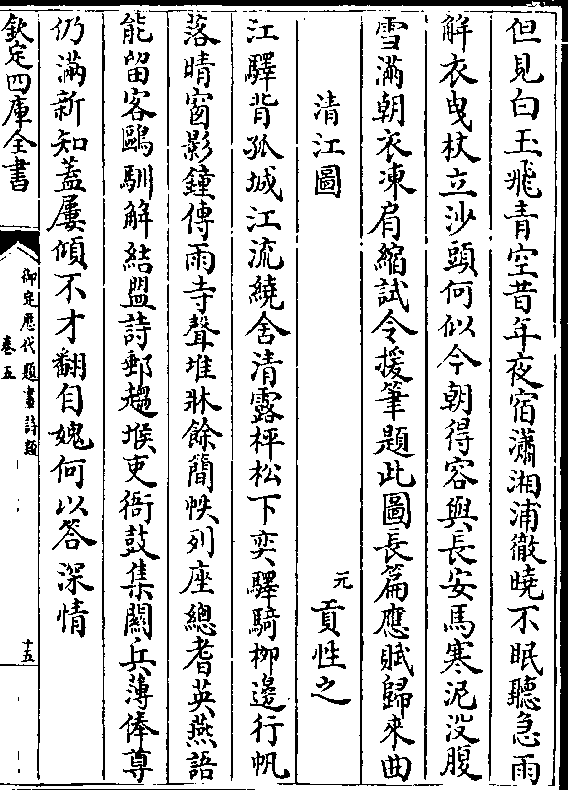 但見白玉飛青空昔年夜宿瀟湘浦徹曉不眠聽急雨
解衣曳杖立沙頭何似今朝得容與長安馬寒泥没腹
雪滿朝衣凍肩縮試令援筆題此圖長篇應賦歸來曲
清江圖
元　貢性之
江驛背孤城江流繞舍清露枰松下奕驛騎栁邊行帆
落晴窗影鐘傳雨寺聲堆牀餘簡帙列座總耆英燕語
能留客鷗馴解結盟詩郵趨堠吏衙鼓集闗兵薄俸尊
仍滿新知蓋屢傾不才翻自媿何以答深情
欽定四庫全書
御定歴代題畫詩類
卷五
十五